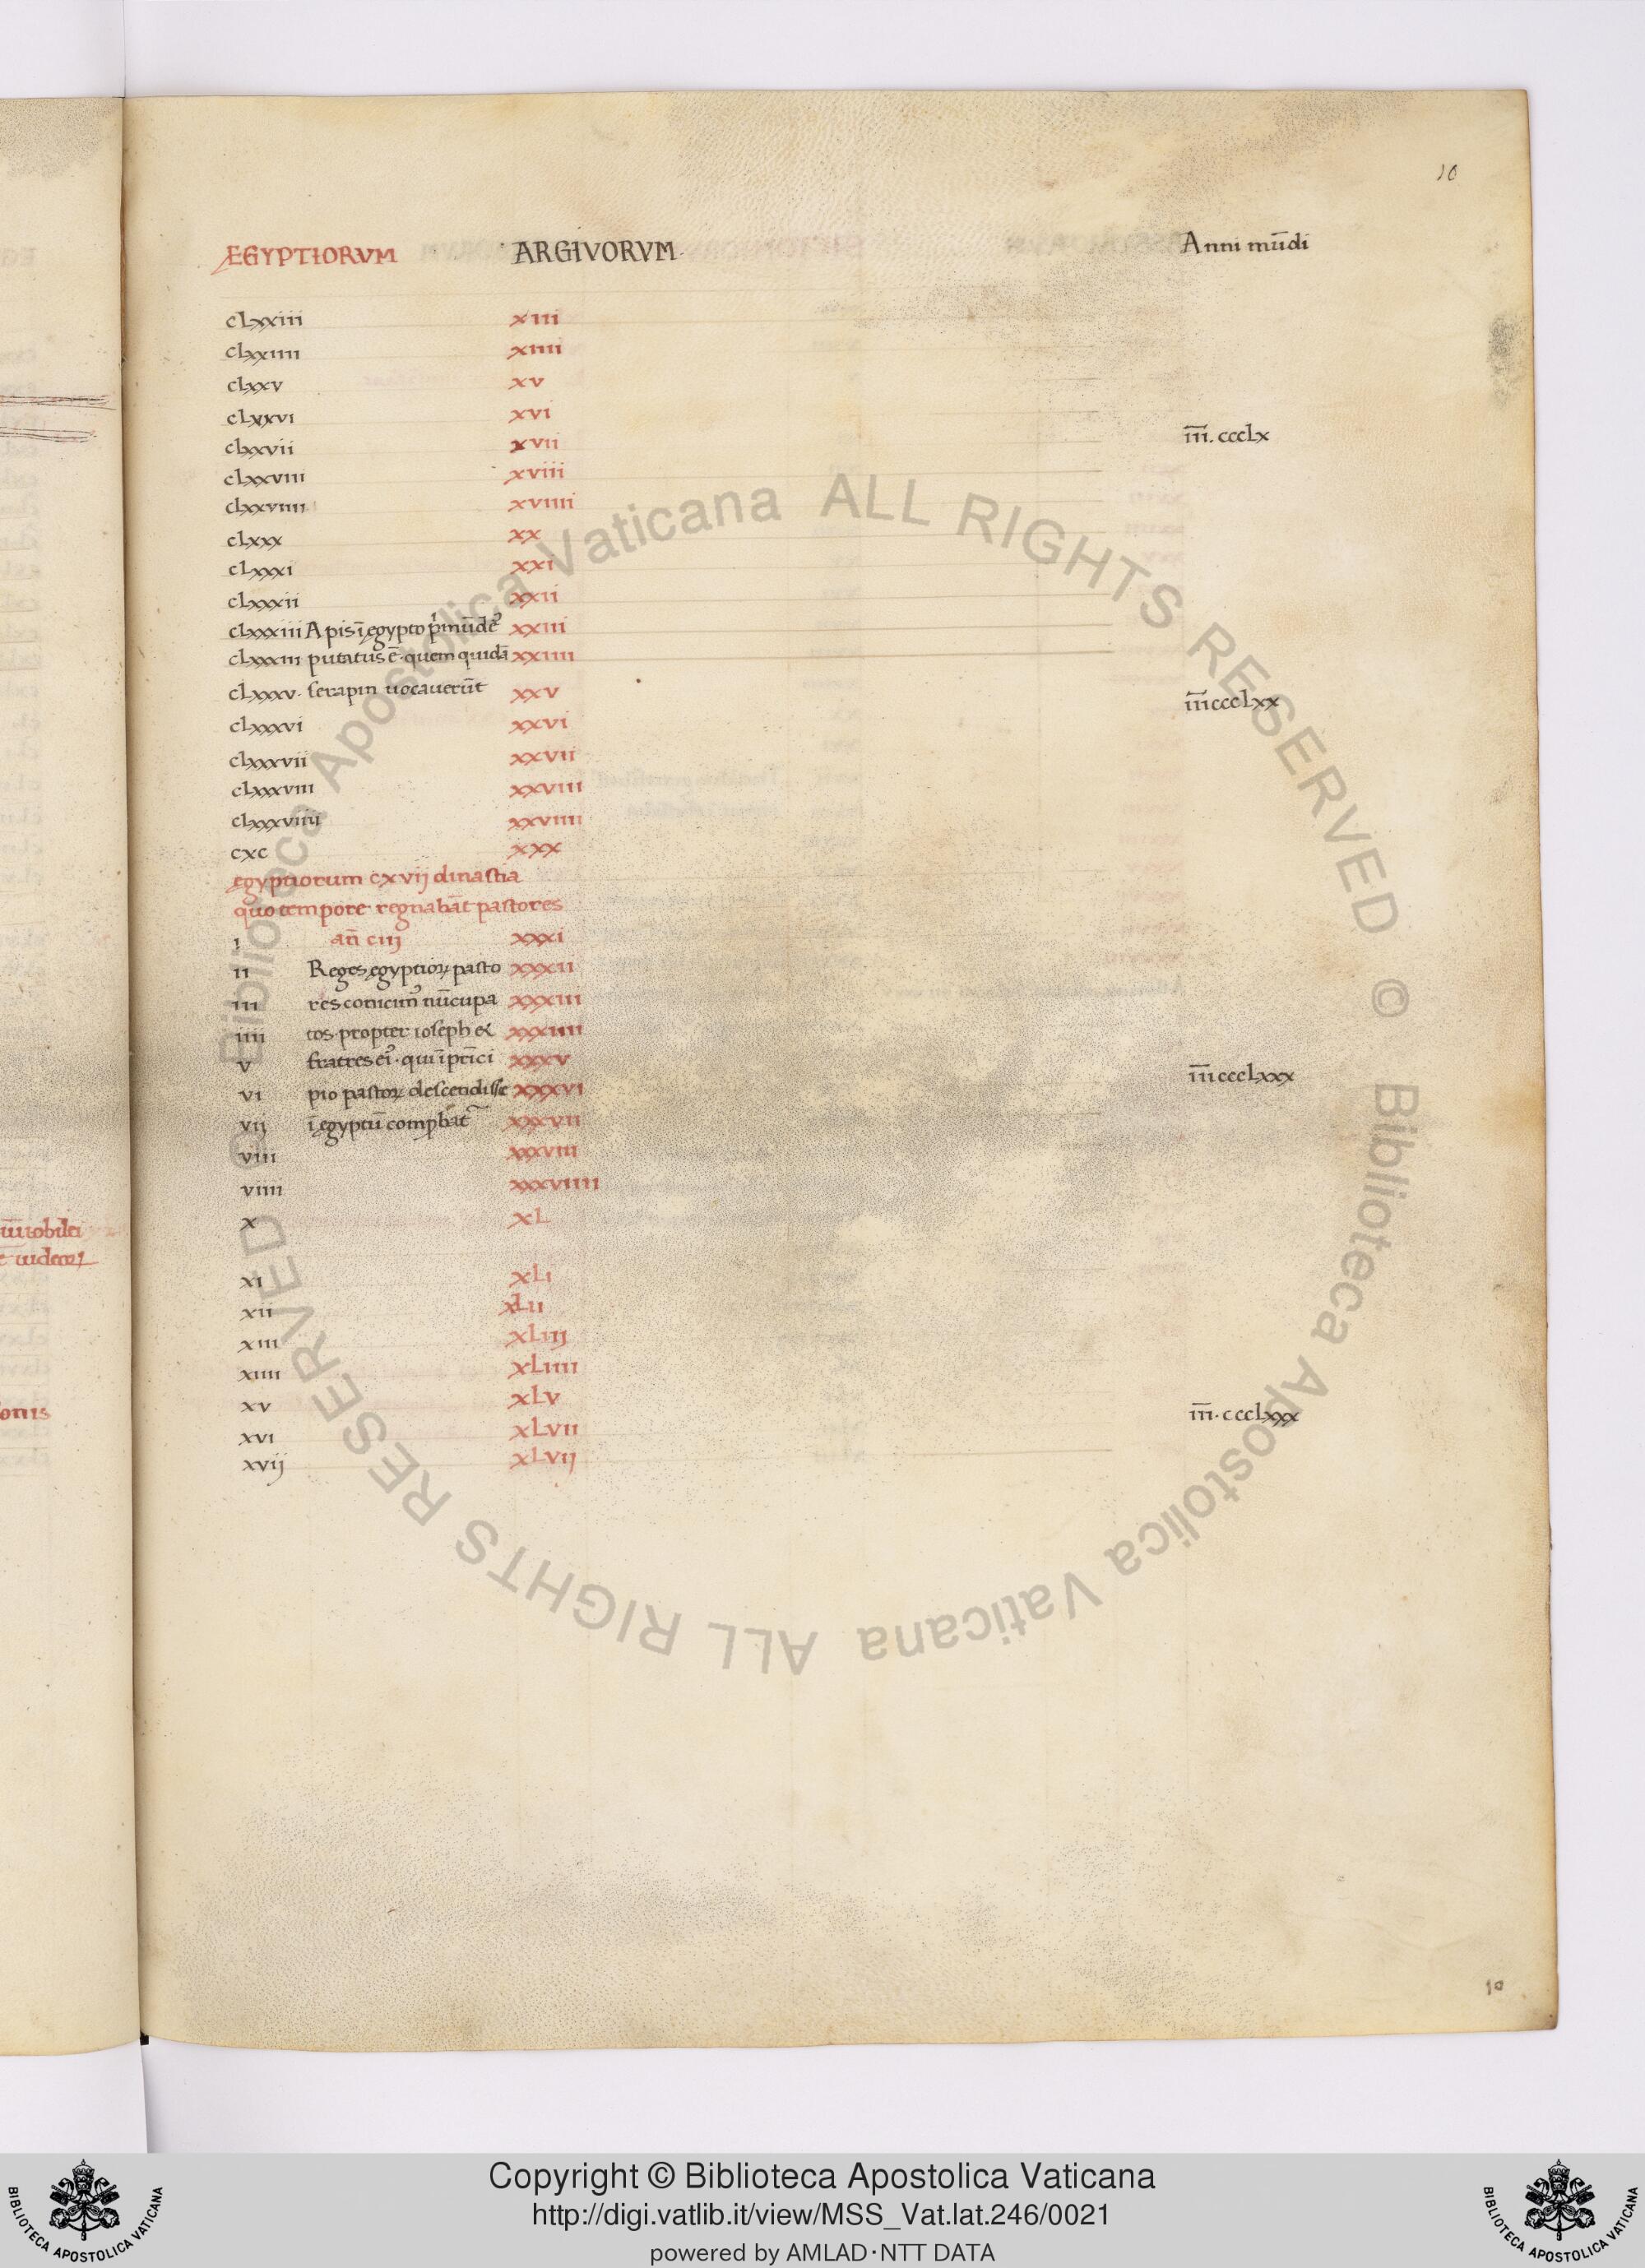 10
ĘGYPTIORVM ARGIVORVM Anni mūdi
cLxxiii xiii
clxxiiii xiiii
clxxv xv
cLxxvi xvi
clxxvii xvii m̅. cccLx
clxxviii xviii
clxxviiii xviiii
cLxxx xx
cLxxxi xxi
cLxxxii xxii
cLxxxiii Apis ī ęgypto xxiii
cLxxxiiii putatus ē· quem quidā xxiiii
cLxxxv· serapin uocauerūt xxv
cLxxxvi xxvi
cLxxxvii xxvii
cLxxxviii xxviii
cLxxxviiii xxviiii
cxc xxx
ęgyptiorum cxvij dinastia
quo tempore regnabāt pastores
i añ ciij xxxi
ii Reges ęgyptioꝝ pasto xxxii
iii res nūcupa xxxiii
iiii tos propter ioseph xxxiiii
v fratres xxxv
vi pio pastoꝝ descendisse xxxvi
vij ī ęgyptū xxxvii
viii xxxviii
viiii xxxviiii
x xL
xi xLi
xii xLii
xiii xLiij
xiiii xLiiii
xv xLv
xvi xLvii
xvij xLvij
10
Biblioteca Apostolica Vaticana ALL RIGHTS RESERVED © Biblioteca Apostolica Vaticana ALL RIGHTS RESERVED ©
Copyright © Biblioteca Apostolica Vaticana
http://digi.vatlib.it/view/MSS_Vat.lat.246/0021
powered by AMLAD·NTT DATA
BIBLIOTECA APOSTOLICA VATICANA
BIBLIOTECA APOSTOLICA VATICANA